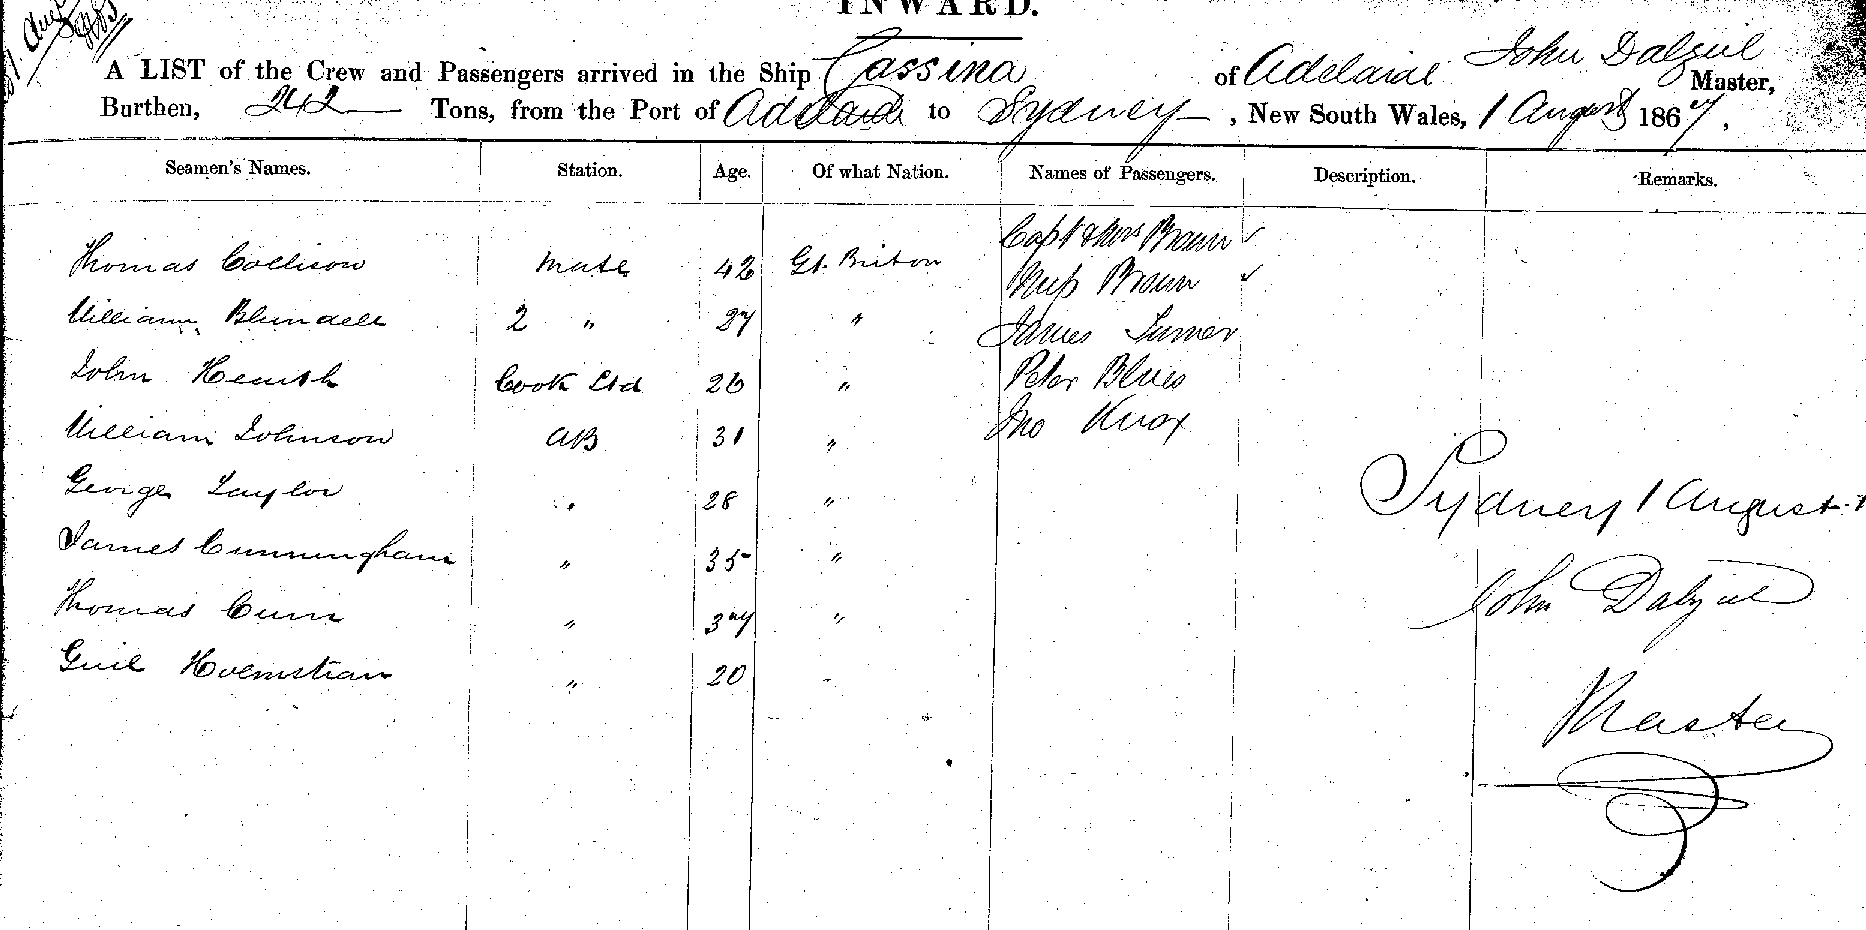 INWARD.
A LIST of the Crew and Passengers arrived in the Ship Cassina of Adelaide John Dalziel Master,
Burthen, 242 Tons, from the Port of Adelaide to Sydney, New South Wales, 1 August 1867.
Seamen's Names. Station. Age. Of what Nation. Names of Passengers. Description. Remarks.
Capt & Mrs Braun ✓
Thomas Collison Mate 42 Gt. Briton
Miss Braun ✓
William Blundell 2 " 27 "
James Turner
John 26 "
Cook Std
Peter Blues
William Johnson AB 31 "
Jno Knox
George Taylor " 28 "
Sydney 1 August
James Cunningham " 35 "
John Dalziel
Thomas " 37 "
" 20
Master